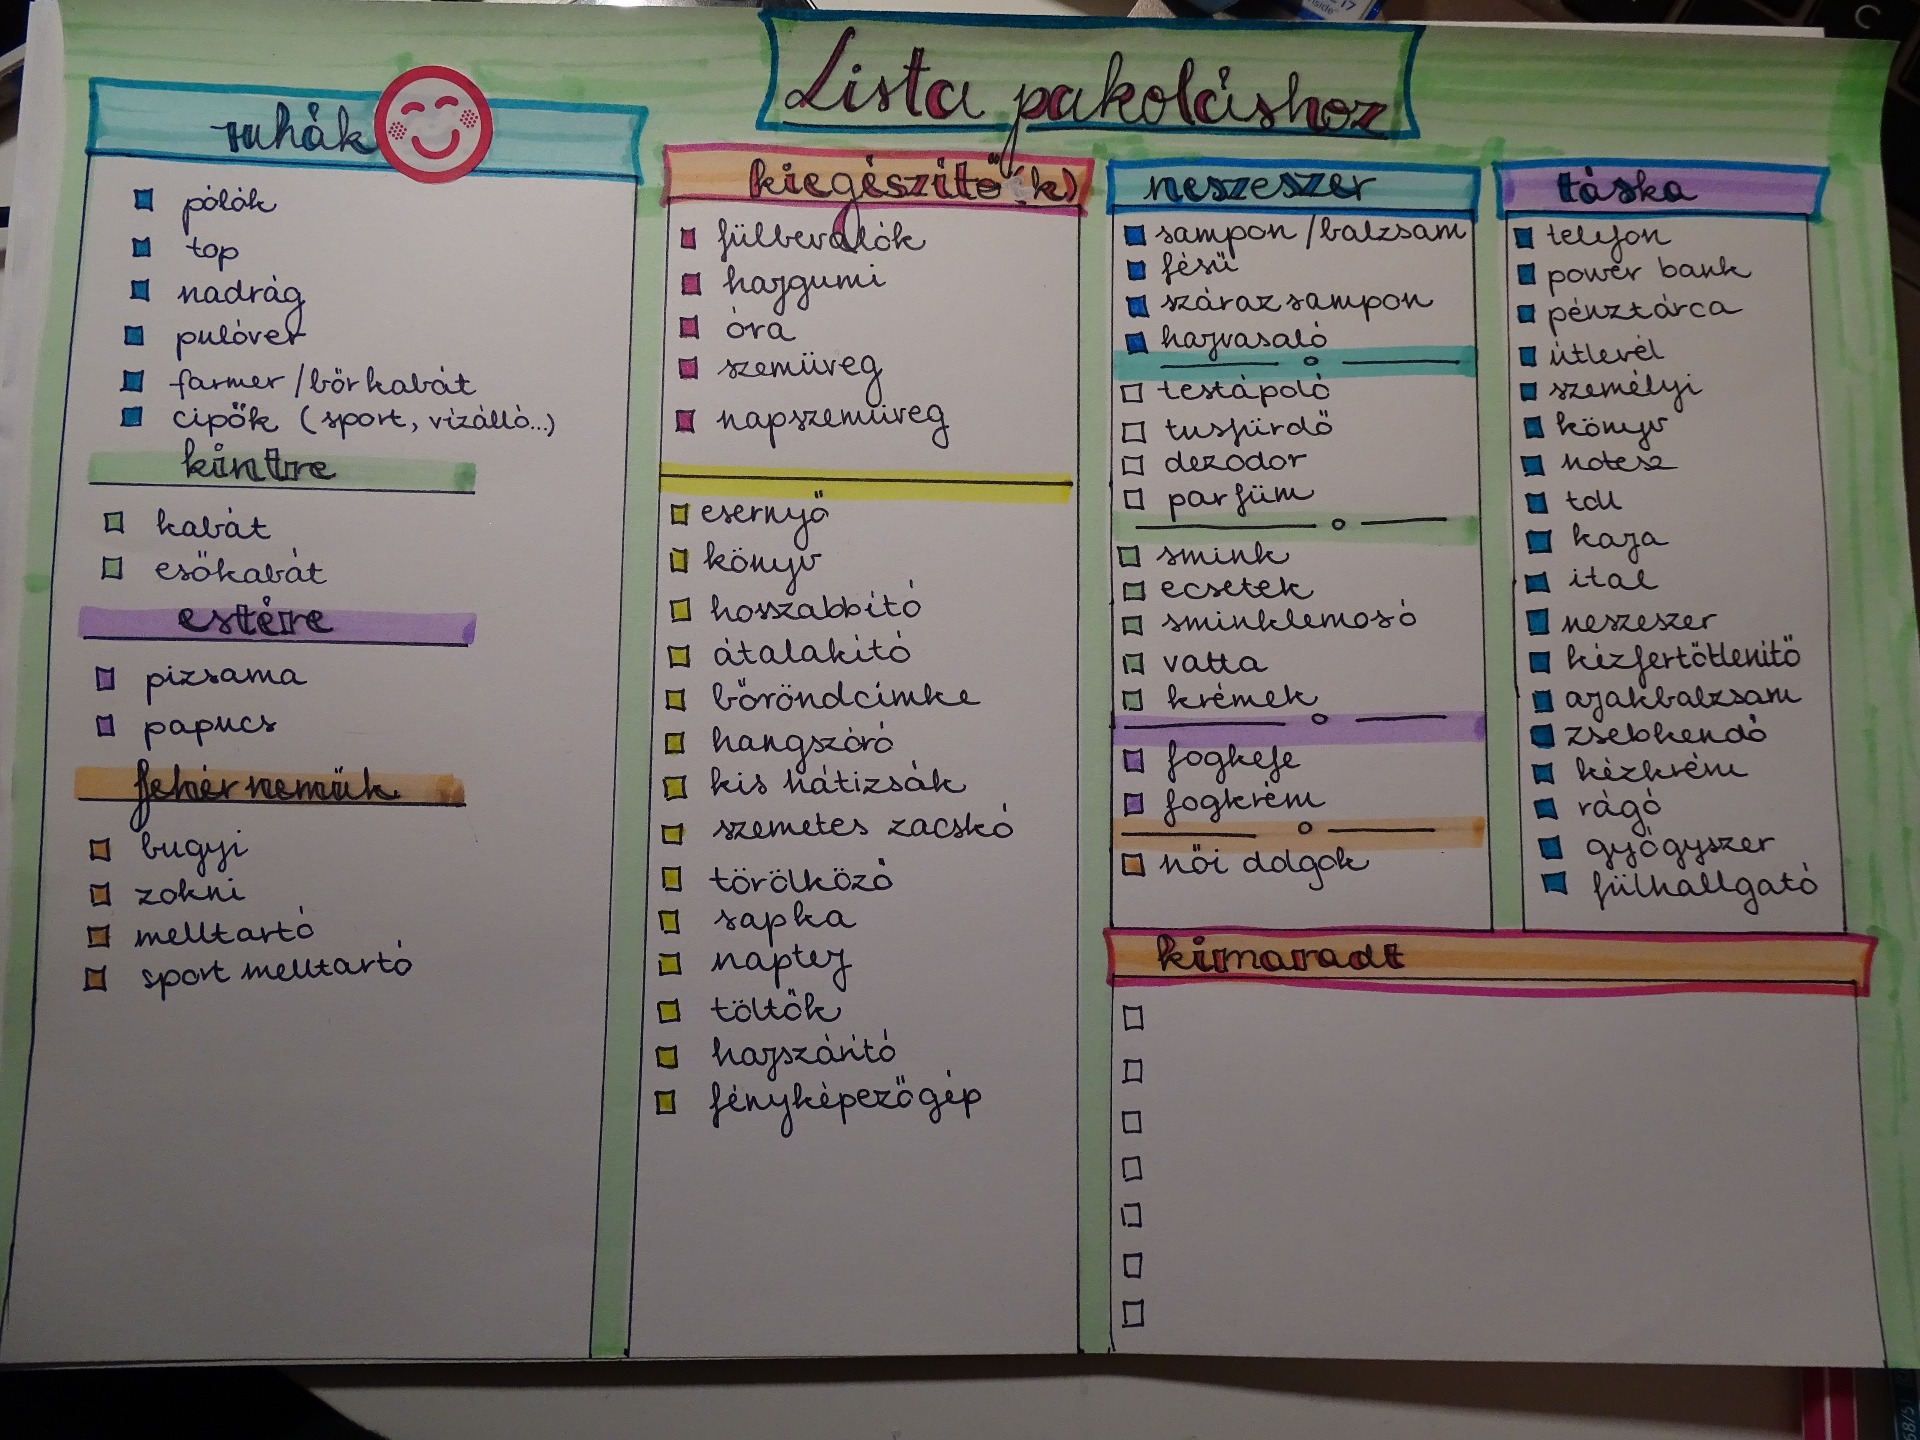 Lista pakoláshoz
ruhák
pólók
top
nadrág
pulóver
farmer/bőrkabát
cipők (sport, vízálló...)
kintre
kabát
esőkabát
estére
pizsama
papucs
fehérneműk
bugyi
zokni
melltartó
sport melltartó
kiegészítő(k)
fülbevalók
hajgumi
óra
szemüveg
napszemüveg
esernyő
könyv
hosszabbító
átalakító
bőröndcímke
hangszóró
kis hátizsák
szemetes zacskó
törölköző
sapka
naptej
töltők
hajszárító
fényképezőgép
neszeszer
sampon/balzsam
fésű
száraz sampon
hajvasaló
testápoló
tusfürdő
dezodor
parfüm
smink
ecsetek
sminklemosó
vatta
krémek
fogkefe
fogkrém
női dolgok
táska
telefon
power bank
pénztárca
útlevél
személyi
könyv
notesz
toll
kaja
ital
neszeszer
kézfertőtlenítő
ajakbalzsam
zsebkendő
kézkrém
rágó
gyógyszer
fülhallgató
kimaradt